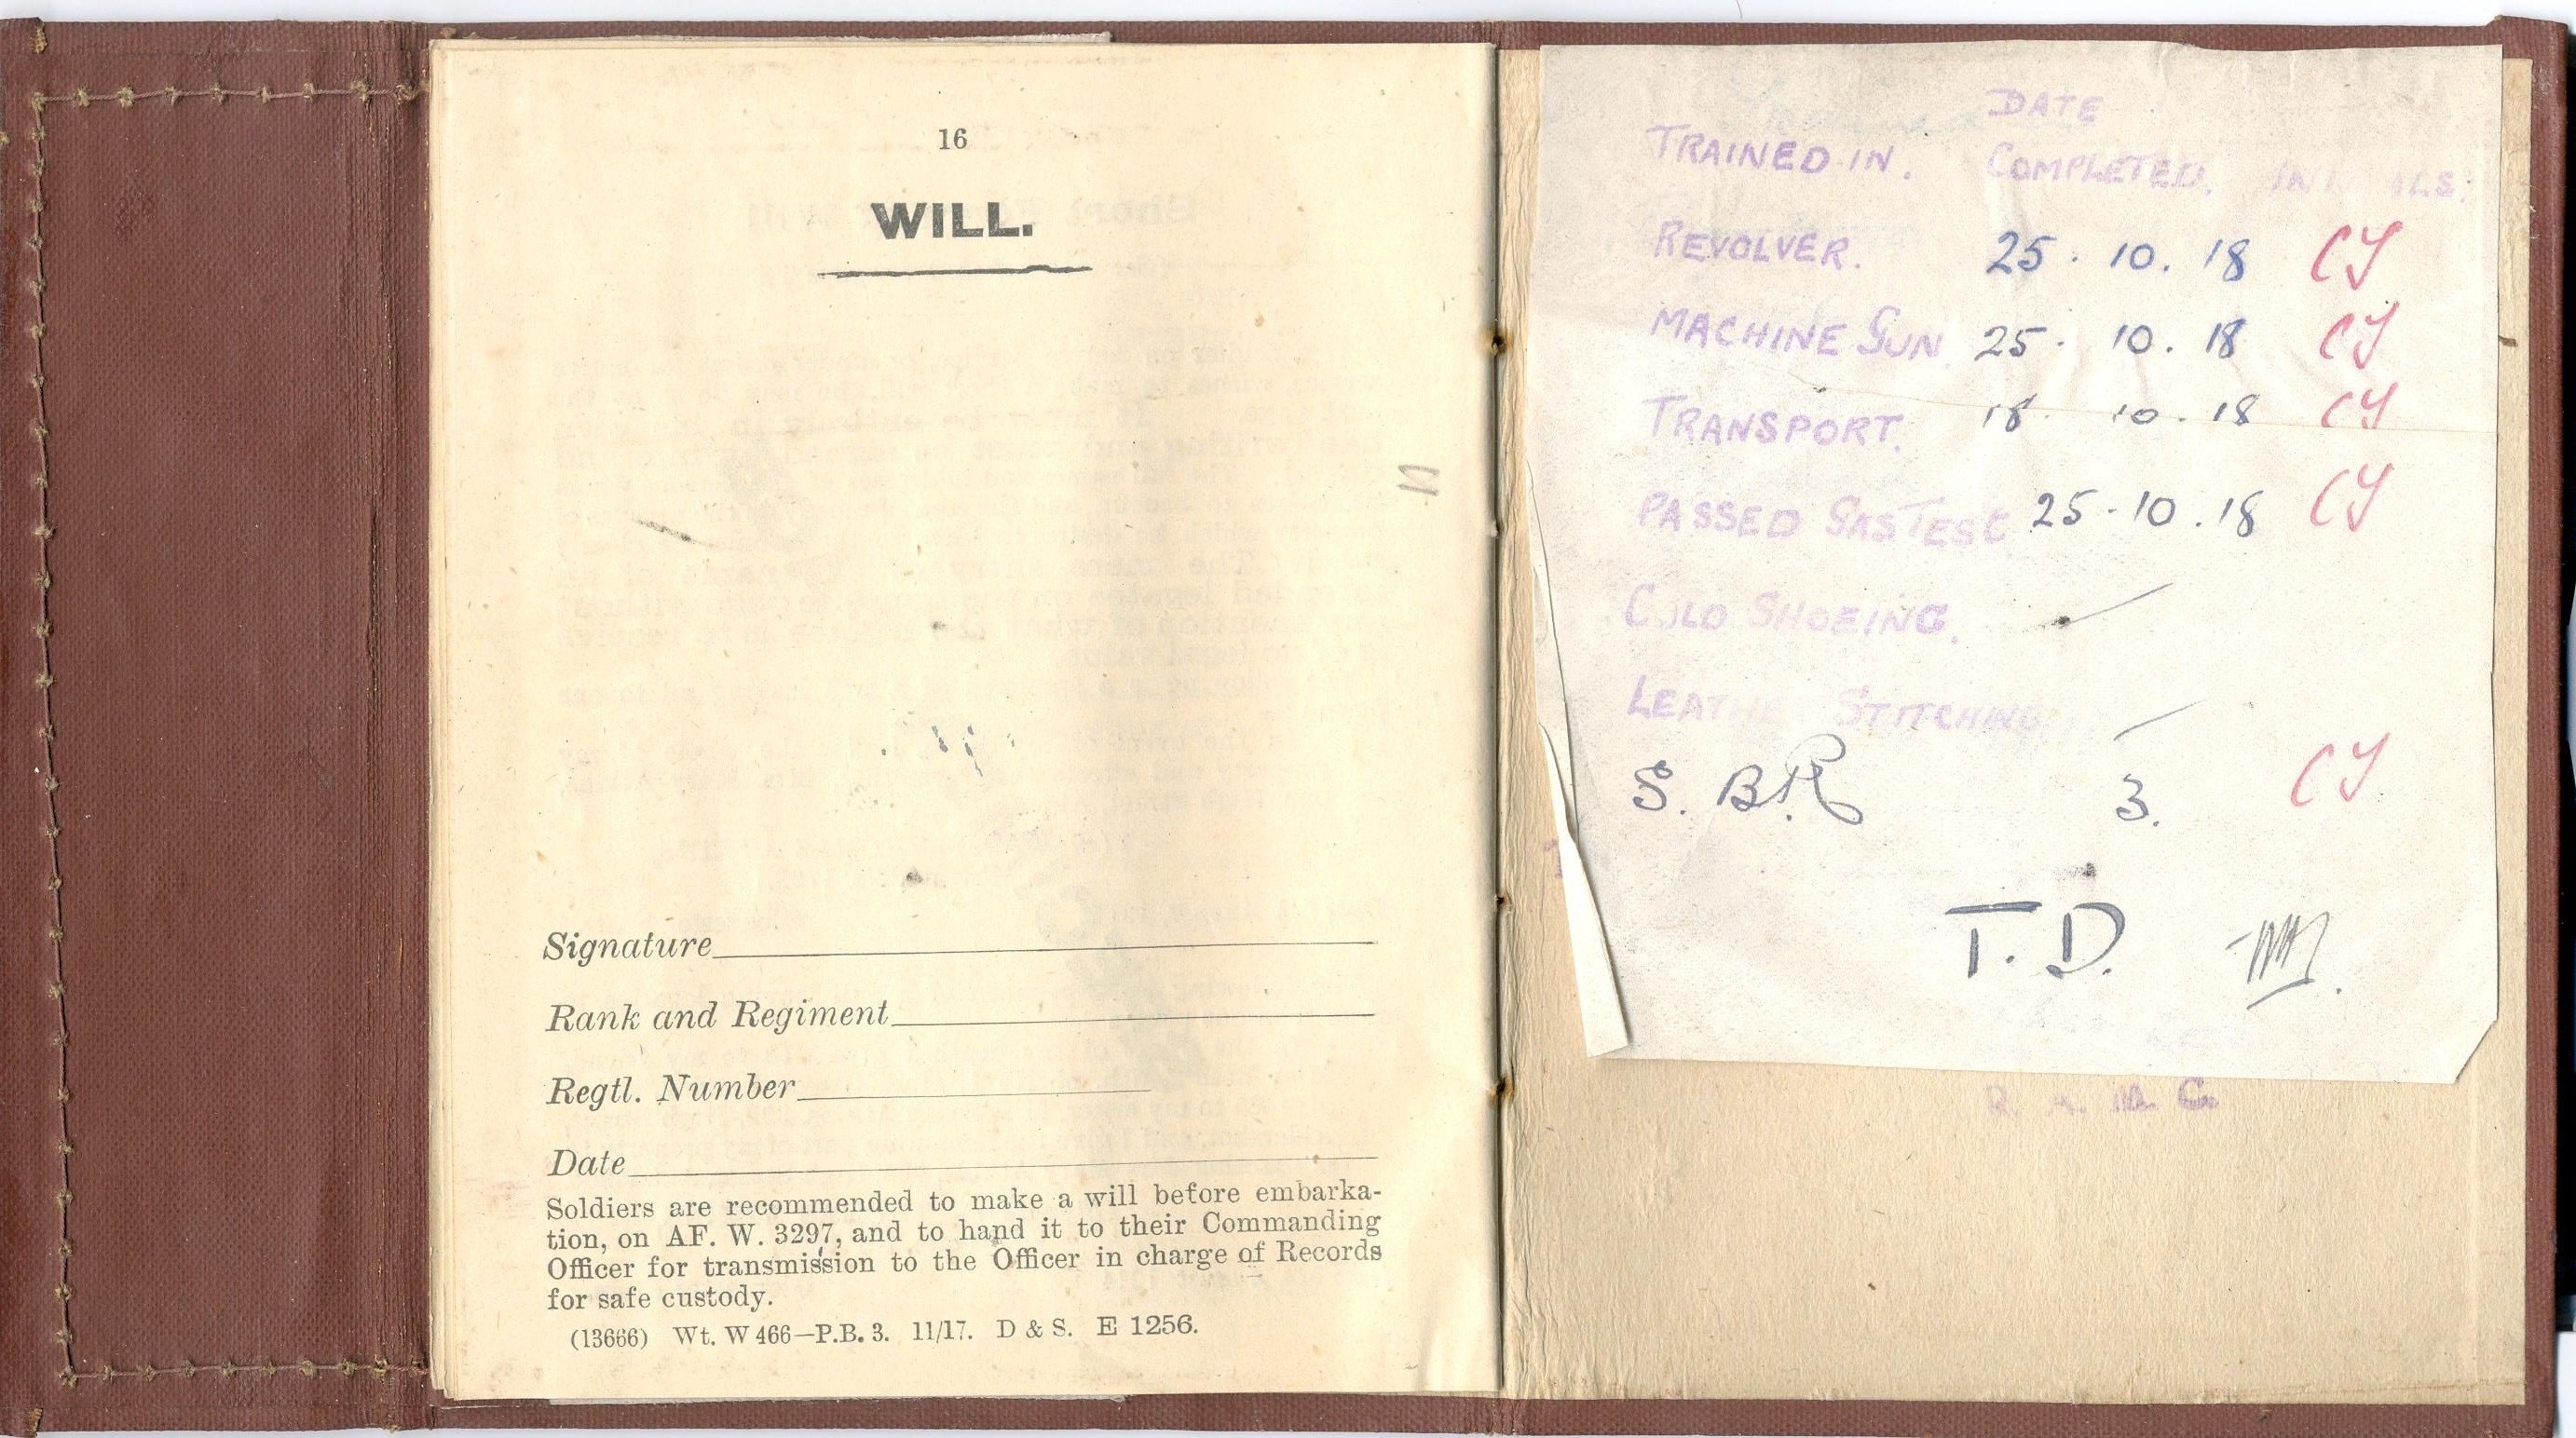 16
WILL.
Signature
Rank and Regiment
Regtl. Number
Date
Soldiers are recommended to make a will before embarka-
tion, on AF. W. 3297, and to hand it to their Commanding
Officer for transmission to the Officer in charge of Records
for safe custody.
(13666) Wt. W 466—P.B. 3. 11/17. D & S. E 1256.
DATE
TRAINED IN. COMPLETED. INITIALS.
REVOLVER. 25 . 10 . 18 CY
MACHINE GUN. 25 . 10 . 18 CY
TRANSPORT. 18 . 10 . 18 CY
PASSED GAS TEST. 25 . 10 . 18 CY
COLD SHOEING.
LEATHE STITCHING
S. B.R 3. CY
T. D.